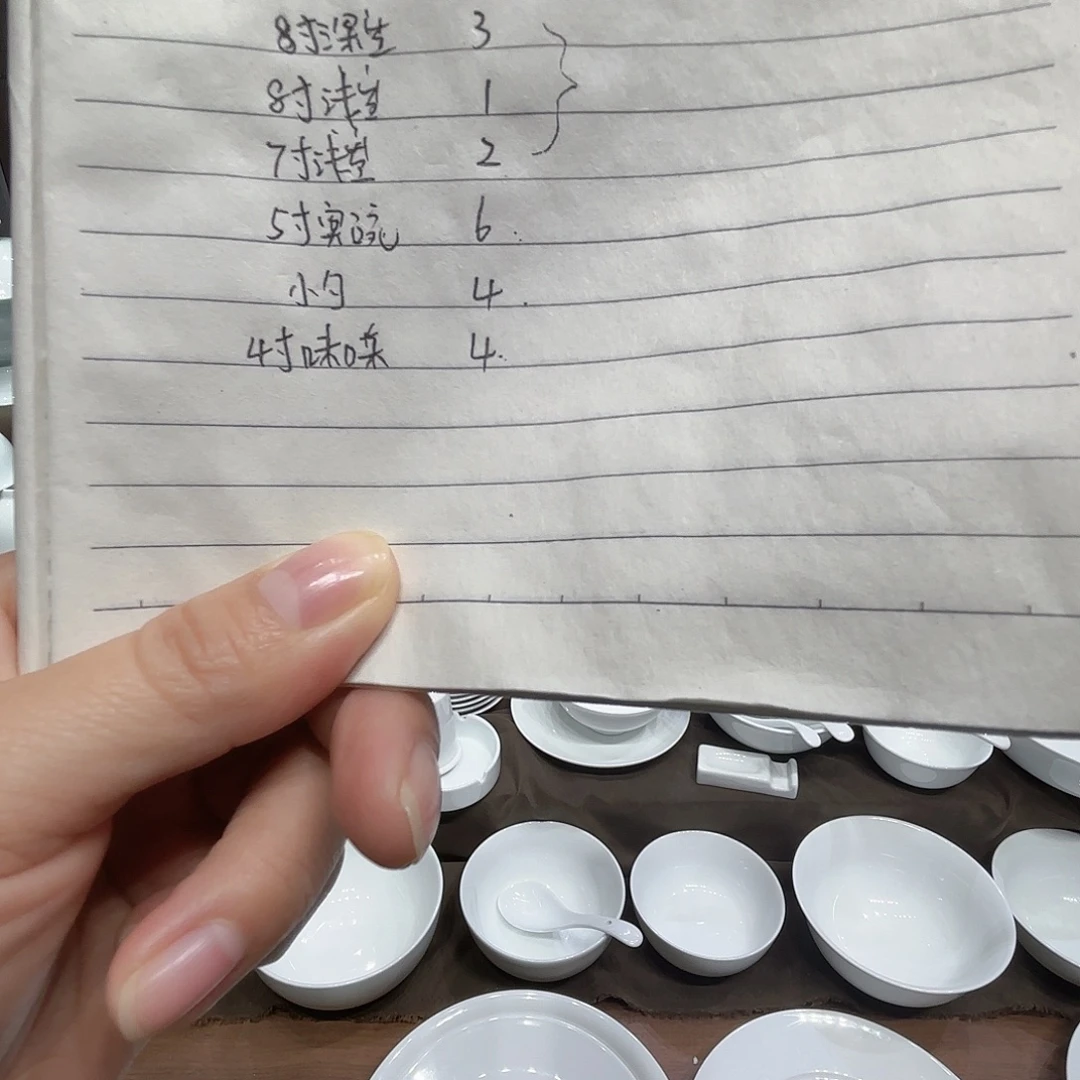 8寸深盘 3
8寸浅盘 1
7寸浅盘 2
5寸奥碗 6
小勺 4
4寸味碟 4